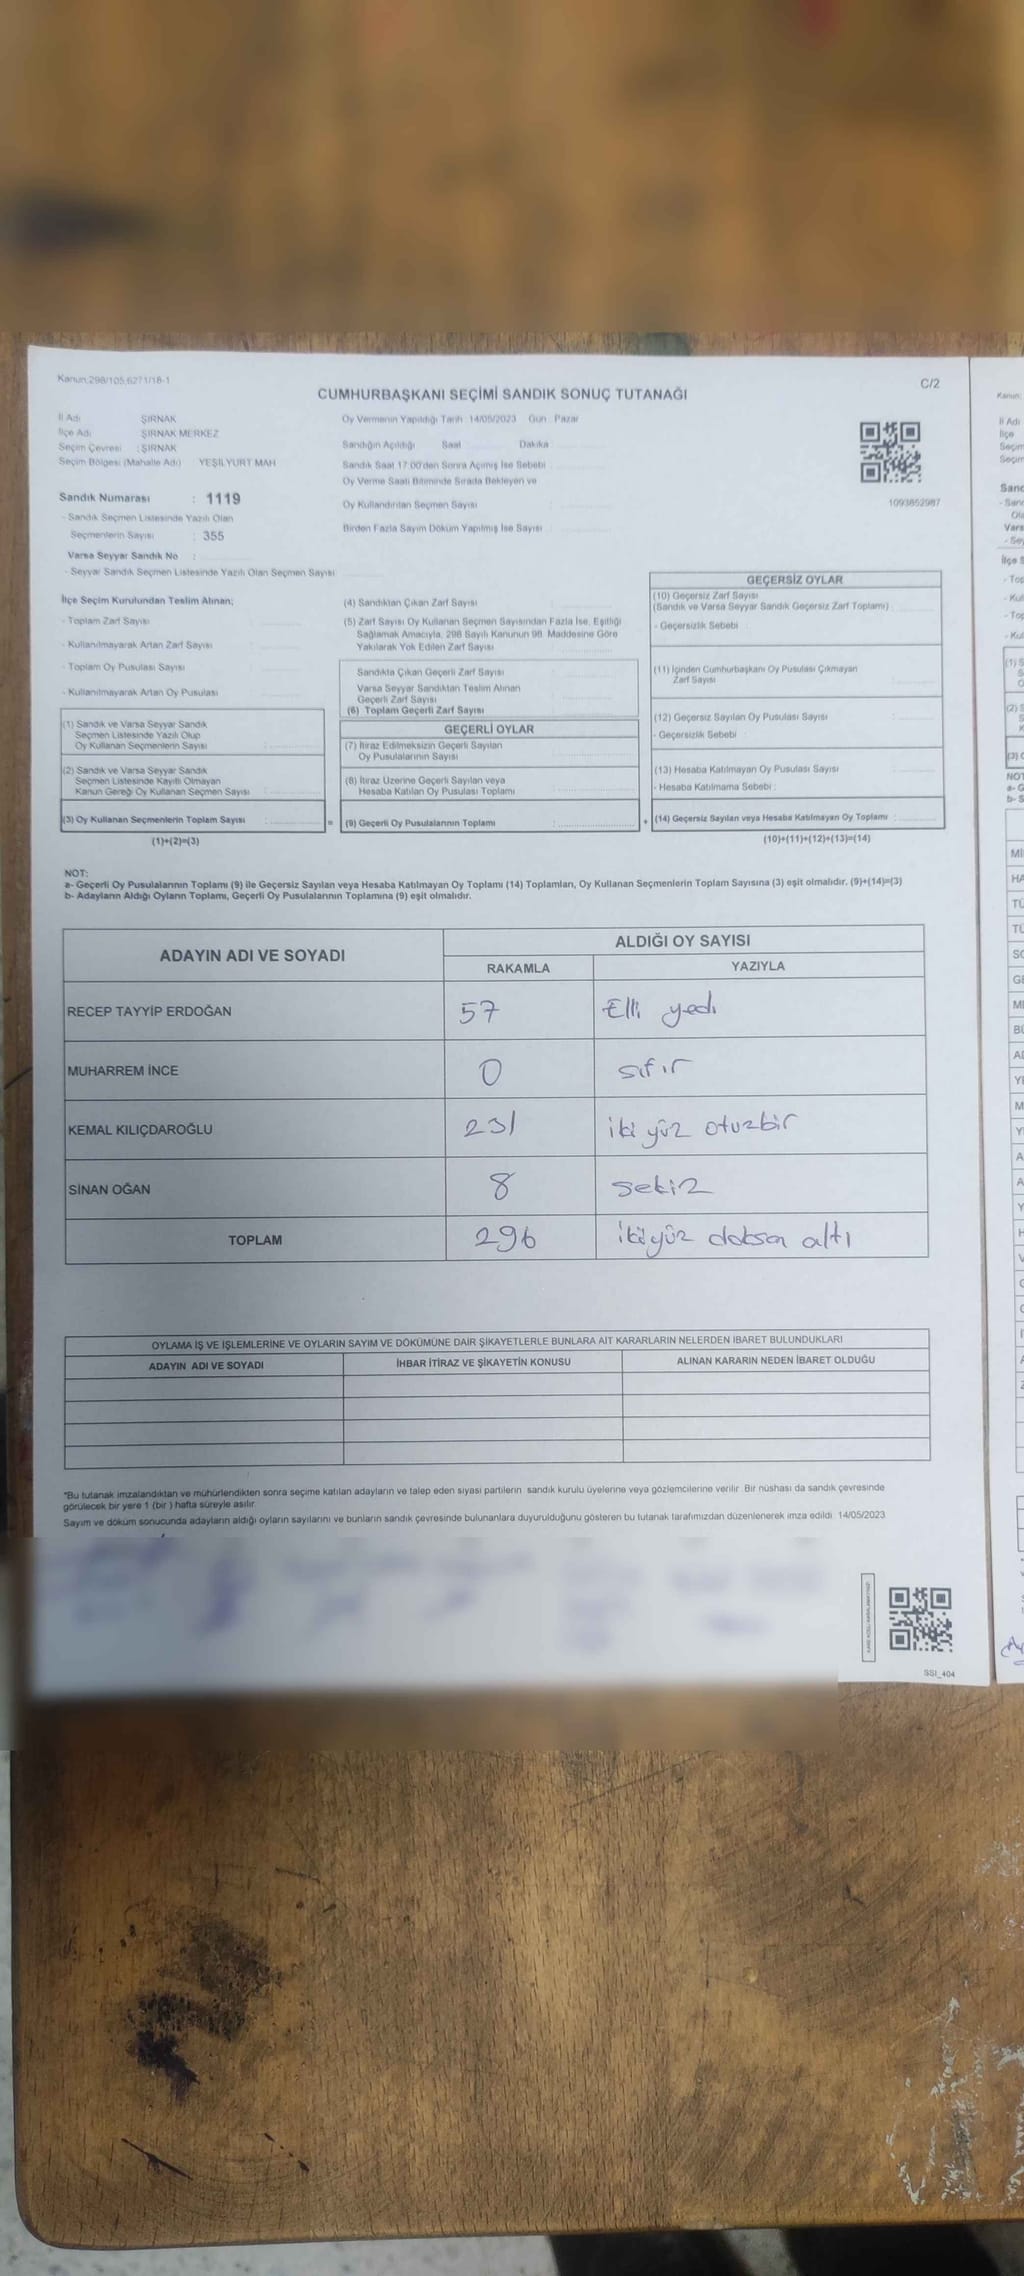 Kanun:298/105,6271/18-1
C/2
CUMHURBAŞKANI SEÇİMİ SANDIK SONUÇ TUTANAĞI
İl Adı ŞIRNAK
İlçe Adı ŞIRNAK MERKEZ
Seçim Çevresi : ŞIRNAK
Seçim Bölgesi (Mahalle Adı) YEŞİLYURT MAH
Sandık Numarası : 1119
- Sandık Seçmen Listesinde Yazılı Olan
Seçmenlerin Sayısı : 355
Varsa Seyyar Sandık No :
- Seyyar Sandık Seçmen Listesinde Yazılı Olan Seçmen Sayısı
Oy Vermenin Yapıldığı Tarih 14/05/2023 Gün : Pazar
Sandığın Açıldığı Saat Dakika
Sandık Saat 17:00'den Sonra Açılmış İse Sebebi
Oy Verme Saati Bitiminde Sırada Bekleyen ve
Oy Kullandırılan Seçmen Sayısı
Birden Fazla Sayım Döküm Yapılmış İse Sayısı
1093852987
İlçe Seçim Kurulundan Teslim Alınan;
- Toplam Zarf Sayısı
- Kullanılmayarak Artan Zarf Sayısı
- Toplam Oy Pusulası Sayısı
- Kullanılmayarak Artan Oy Pusulası
(1) Sandık ve Varsa Seyyar Sandık
Seçmen Listesinde Yazılı Olup
Oy Kullanan Seçmenlerin Sayısı
(2) Sandık ve Varsa Seyyar Sandık
Seçmen Listesinde Kayıtlı Olmayan
Kanun Gereği Oy Kullanan Seçmen Sayısı
(3) Oy Kullanan Seçmenlerin Toplam Sayısı
(1)+(2)=(3)
(4) Sandıktan Çıkan Zarf Sayısı
(5) Zarf Sayısı Oy Kullanan Seçmen Sayısından Fazla İse, Eşitliği
Sağlamak Amacıyla, 298 Sayılı Kanunun 98. Maddesine Göre
Yakılarak Yok Edilen Zarf Sayısı
Sandıkta Çıkan Geçerli Zarf Sayısı
Varsa Seyyar Sandıktan Teslim Alınan
Geçerli Zarf Sayısı
(6) Toplam Geçerli Zarf Sayısı
GEÇERLİ OYLAR
(7) İtiraz Edilmeksizin Geçerli Sayılan
Oy Pusulalarının Sayısı
(8) İtiraz Üzerine Geçerli Sayılan veya
Hesaba Katılan Oy Pusulası Toplamı
= (9) Geçerli Oy Pusulalarının Toplamı
GEÇERSİZ OYLAR
(10) Geçersiz Zarf Sayısı
(Sandık ve Varsa Seyyar Sandık Geçersiz Zarf Toplamı)
- Geçersizlik Sebebi :
(11) İçinden Cumhurbaşkanı Oy Pusulası Çıkmayan
Zarf Sayısı
(12) Geçersiz Sayılan Oy Pusulası Sayısı
- Geçersizlik Sebebi :
(13) Hesaba Katılmayan Oy Pusulası Sayısı
- Hesaba Katılmama Sebebi :
+ (14) Geçersiz Sayılan veya Hesaba Katılmayan Oy Toplamı :
(10)+(11)+(12)+(13)=(14)
NOT:
a- Geçerli Oy Pusulalarının Toplamı (9) ile Geçersiz Sayılan veya Hesaba Katılmayan Oy Toplamı (14) Toplamları, Oy Kullanan Seçmenlerin Toplam Sayısına (3) eşit olmalıdır. (9)+(14)=(3)
b- Adayların Aldığı Oyların Toplamı, Geçerli Oy Pusulalarının Toplamına (9) eşit olmalıdır.
ADAYIN ADI VE SOYADI ALDIĞI OY SAYISI
RAKAMLA YAZIYLA
RECEP TAYYİP ERDOĞAN 57 Elli yedi
MUHARREM İNCE 0 sıfır
KEMAL KILIÇDAROĞLU 231 iki yüz otuzbir
SİNAN OĞAN 8 sekiz
TOPLAM 296 ikiyüz doksan altı
OYLAMA İŞ VE İŞLEMLERİNE VE OYLARIN SAYIM VE DÖKÜMÜNE DAİR ŞİKAYETLERLE BUNLARA AİT KARARLARIN NELERDEN İBARET BULUNDUKLARI
ADAYIN ADI VE SOYADI İHBAR İTİRAZ VE ŞİKAYETİN KONUSU ALINAN KARARIN NEDEN İBARET OLDUĞU
*Bu tutanak imzalandıktan ve mühürlendikten sonra seçime katılan adayların ve talep eden siyasi partilerin sandık kurulu üyelerine veya gözlemcilerine verilir. Bir nüshası da sandık çevresinde
görülecek bir yere 1 (bir ) hafta süreyle asılır.
Sayım ve döküm sonucunda adayların aldığı oyların sayılarını ve bunların sandık çevresinde bulunanlara duyurulduğunu gösteren bu tutanak tarafımızdan düzenlenerek imza edildi. 14/05/2023
SSI_404